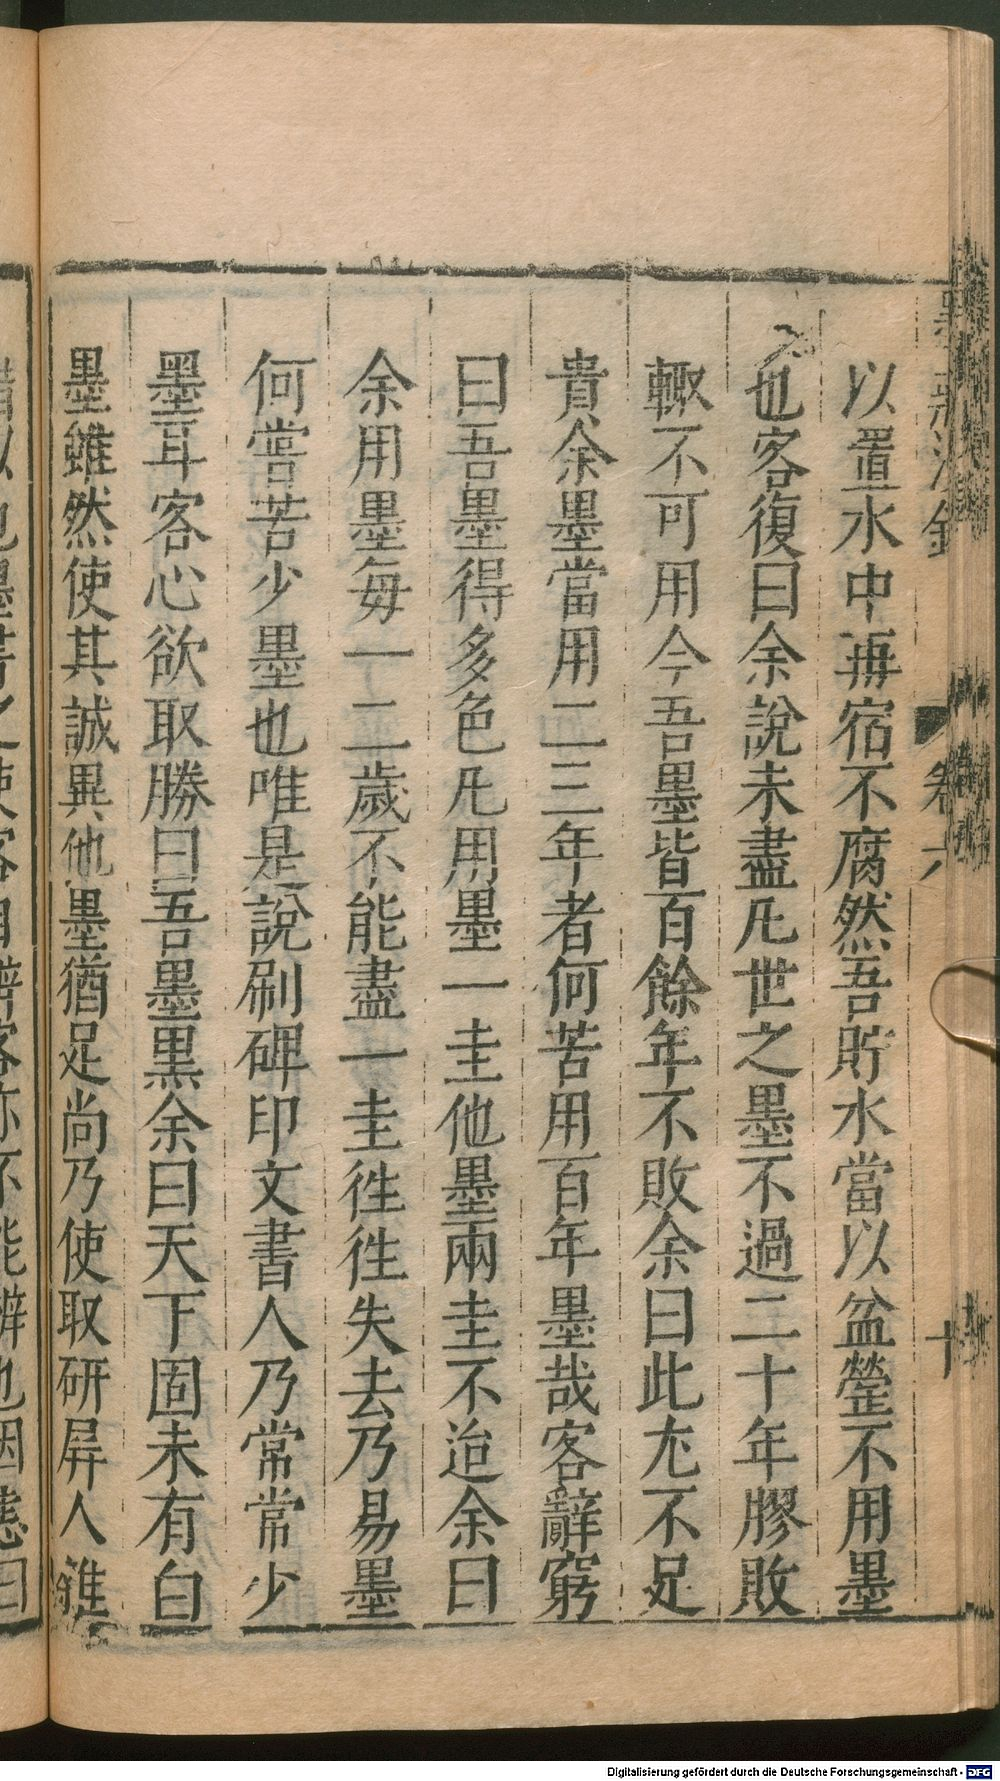 以置水中再宿不腐然吾貯水當以盆罃不用墨
也客復曰余說未盡凡世之墨不過二十年膠敗
輙不可用今吾墨皆百餘年不敗余曰此尤不足
貴余墨當用二三年者何苦用百年墨哉客辭窮
曰吾墨得多色凡用墨一圭他墨兩圭不迨余曰
余用墨每一二歲不能盡一圭徃徃失去乃易墨
何嘗苦少墨也唯是說刷碑印文書人乃常常少
墨耳客心欲取勝曰吾墨黑余曰天下固未有白
墨雖然使其誠異他墨猶足尚乃使取研屏人雜
Digitalisierung gefördert durch die Deutsche Forschungsgemeinschaft - DFG